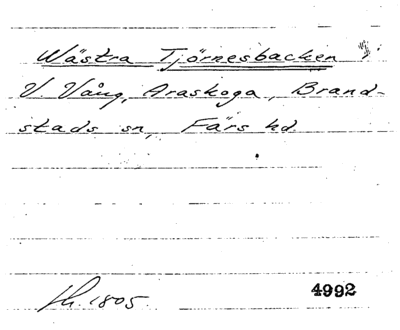 Wästra Tjörnesbacken i
V. Vång, Araskoga, Brand-
stads sn, Färs hd.
h. 1805. 4992